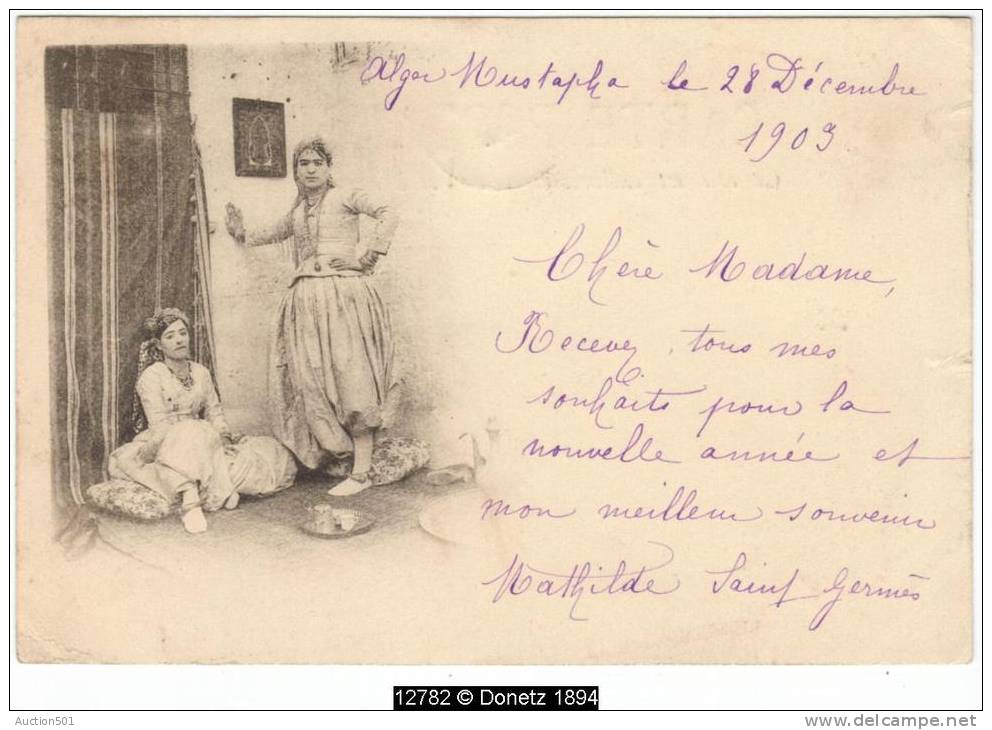 Alger Mustapha le 28 Décembre
1903
Chère Madame,
Recevez tous mes
souhaits pour la
nouvelle année et
mon meilleur souvenir
Mathilde Saint Germès
12782 © Donetz 1894
Auction501
www.delcampe.net